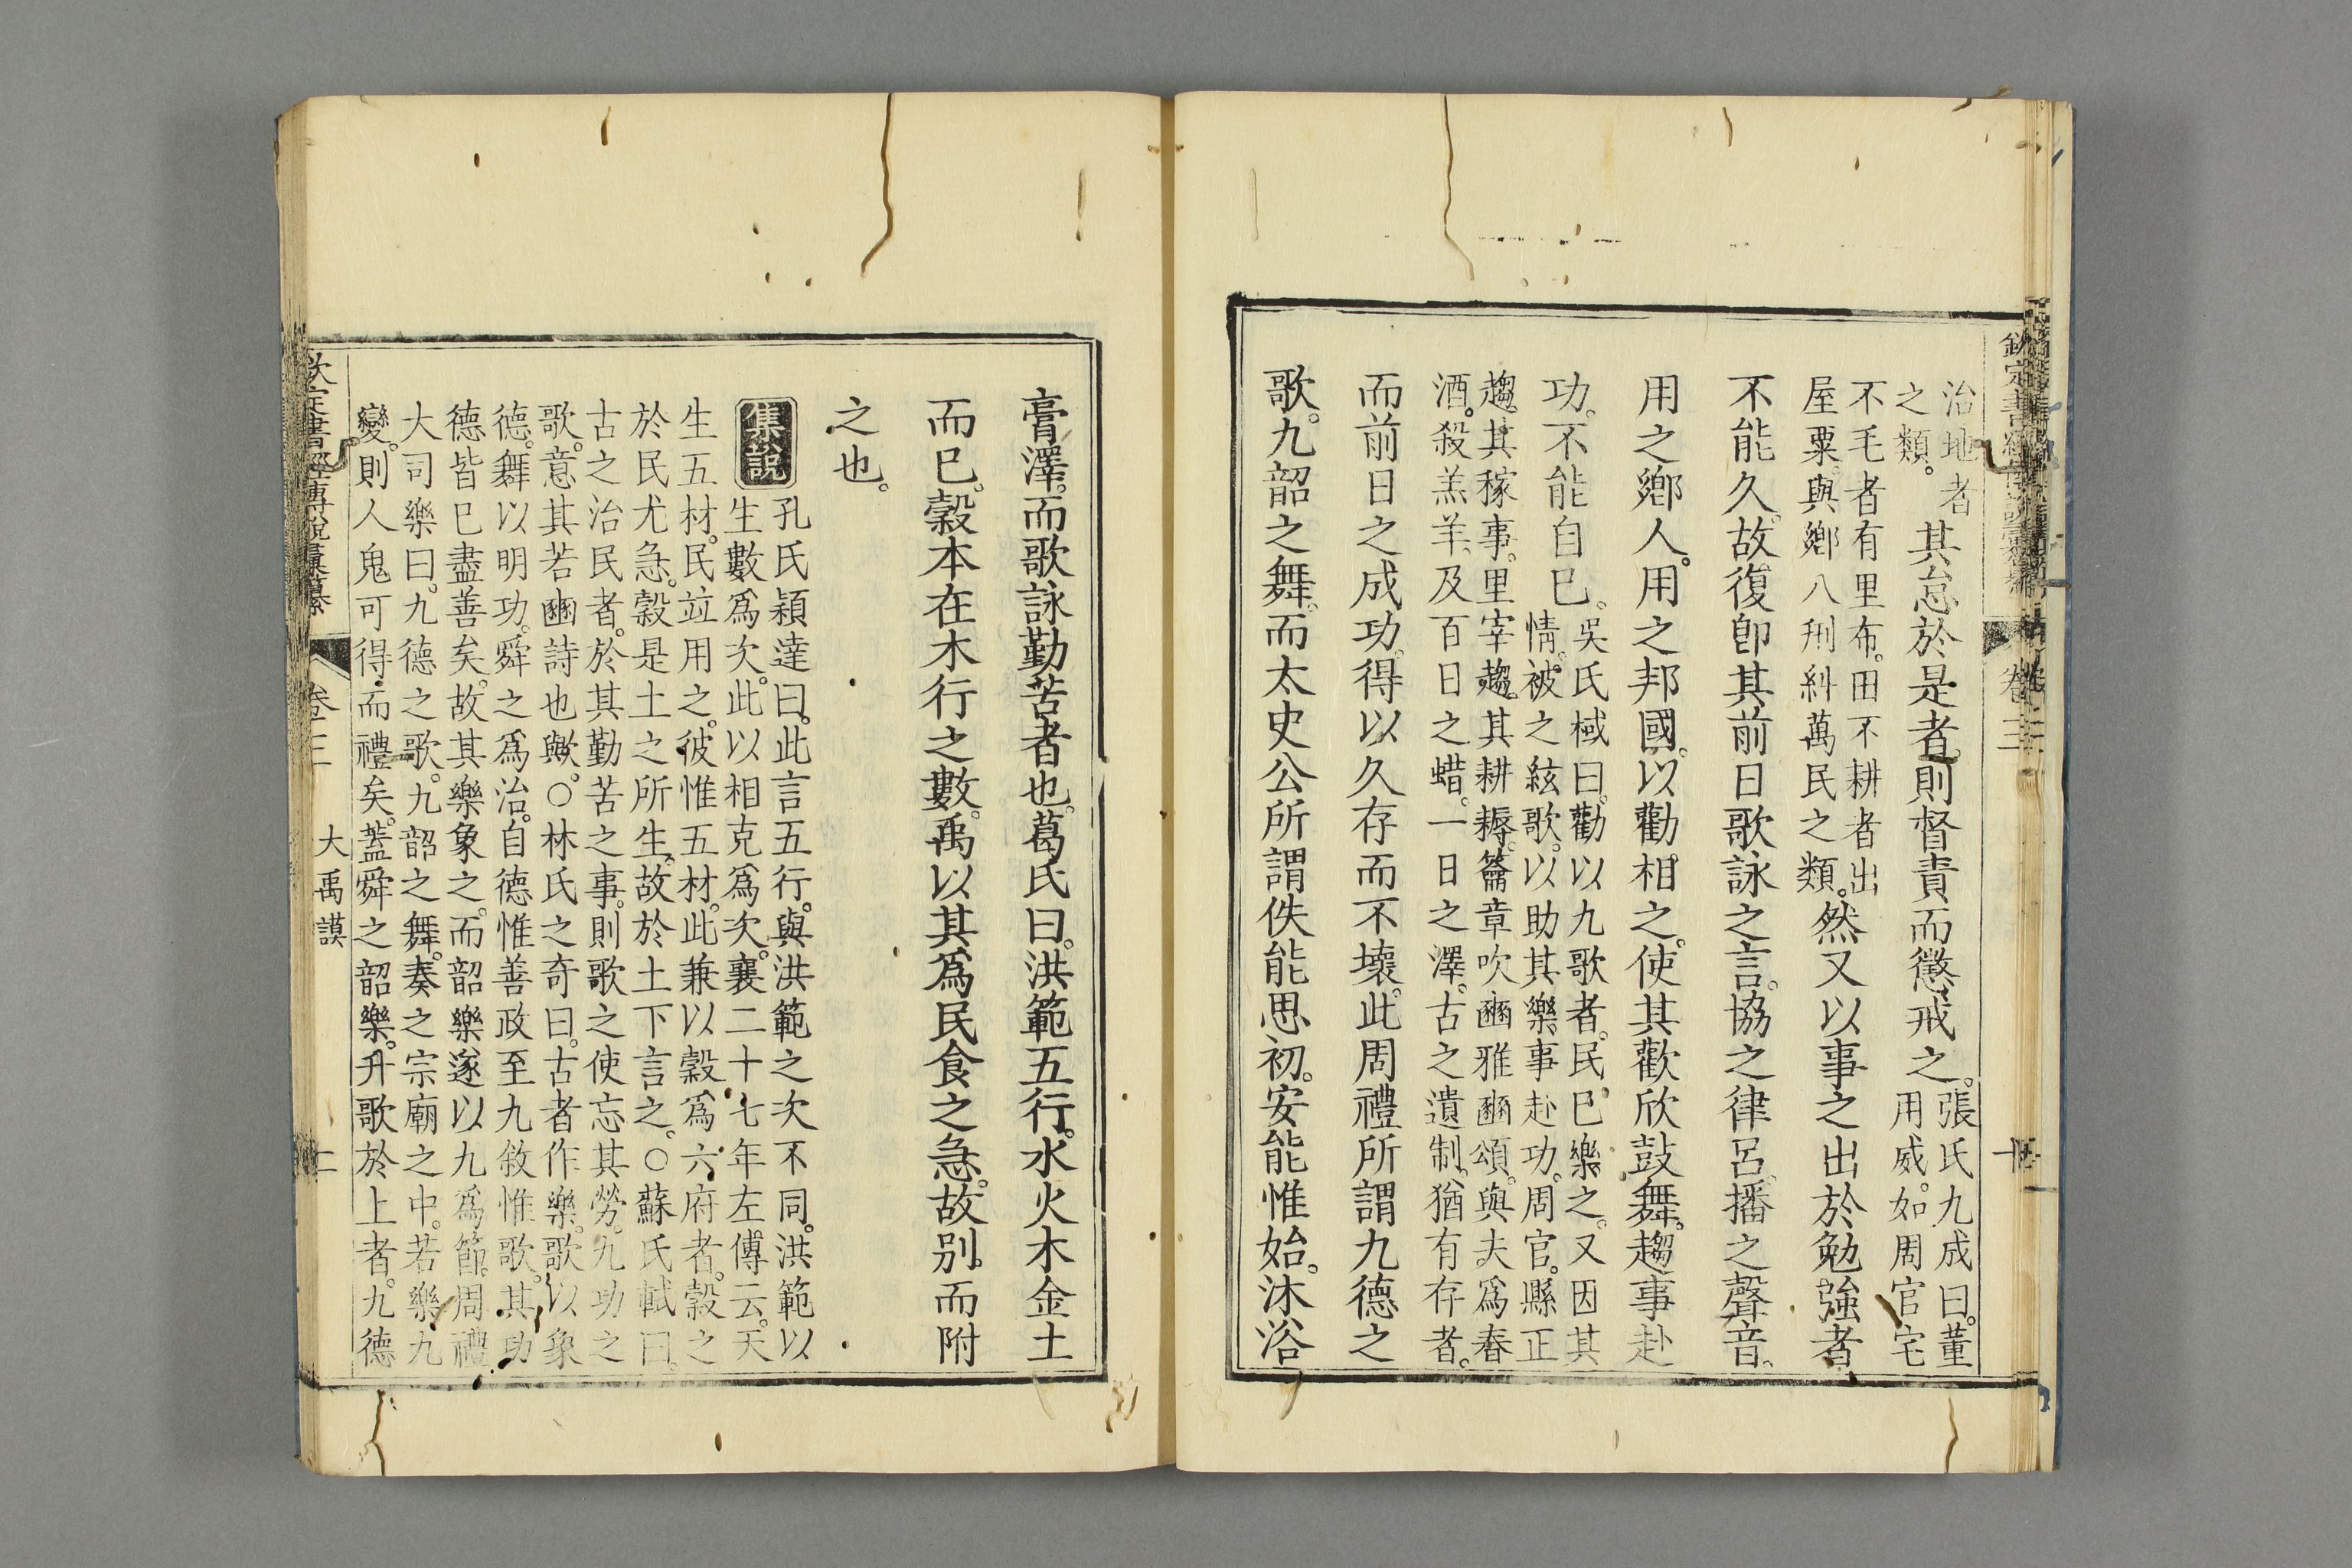 治地者
之類。
其怠於是者。則督責而懲戒之。
張氏九成曰。董
用威。如周官宅
不毛者有里布。田不耕者出
屋粟。與鄉八刑糾萬民之類。
然又以事之出於勉強者
不能久。故復卽其前日歌詠之言。協之律呂。播之聲音。
用之鄉人。用之邦國。以勸相之。使其歡欣鼓舞。趨事赴
功。不能自巳。
吳氏棫曰。勸以九歌者。民巳樂之。又因其
情。被之絃歌。以助其樂事赴功。周官。縣正
趨其稼事。里宰趨其耕耨。籥章吹豳雅豳頌。與夫爲春
酒。殺羔羊。及百日之蜡。一日之澤。古之遺制。猶有存者。
而前日之成功。得以久存而不壞。此周禮所謂九德之
歌。九韶之舞。而太史公所謂佚能思初。安能惟始。沐浴
膏澤。而歌詠勤苦者也。葛氏曰。洪範五行。水火木金土
而巳。穀本在木行之數。禹以其爲民食之急。故别而附
之也。
集說
孔氏穎達曰。此言五行。與洪範之次不同。洪範以
生數爲次。此以相克爲次。襄二十七年左傳云。天
生五材。民竝用之。彼惟五材。此兼以穀爲六府者。穀之
於民尤急。穀是土之所生。故於土下言之。○蘇氏軾曰。
古之治民者。於其勤苦之事。則歌之使忘其勞。九功之
歌。意其若豳詩也歟。○林氏之奇曰。古者作樂。歌以象
德。舞以明功。舜之爲治。自德惟善政至九敘惟歌。其功
德皆巳盡善矣。故其樂象之。而韶樂遂以九爲節。周禮
大司樂曰。九德之歌。九韶之舞。奏之宗廟之中。若樂九
變。則人鬼可得而禮矣。蓋舜之韶樂。升歌於上者。九德
欽定書經傳說彙纂
卷三
大禹謨